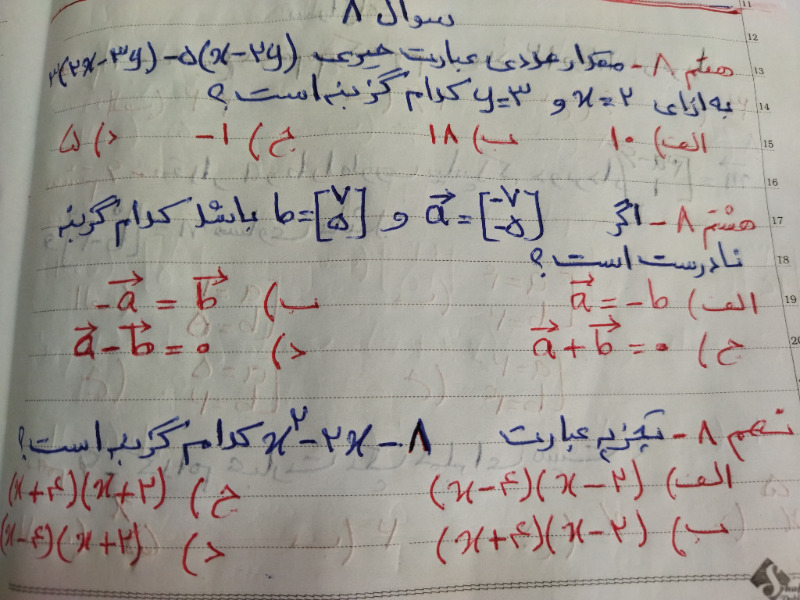 سوال ۸
هفتم ۸- مقدار عددی عبارت جبری ۳(۲x-۳y)-۵(x-۲y)
به ازای x=۲ و y=۳ کدام گزینه است؟
الف) ۱۰ ب) ۱۸ ج) -۱ د) ۵
هشتم ۸- اگر a⃗=[-۷ -۵] و b=[۷ ۵] باشد کدام گزینه
نادرست است؟
الف) a⃗=-b ب) -a⃗=b⃗
ج) a⃗+b⃗=۰ د) a⃗-b⃗=۰
نهم ۸- تجزیه عبارت x²-۲x-۸ کدام گزینه است؟
الف) (x-۴)(x-۲) ج) (x+۴)(x+۲)
ب) (x+۴)(x-۲) د) (x-۴)(x+۲)